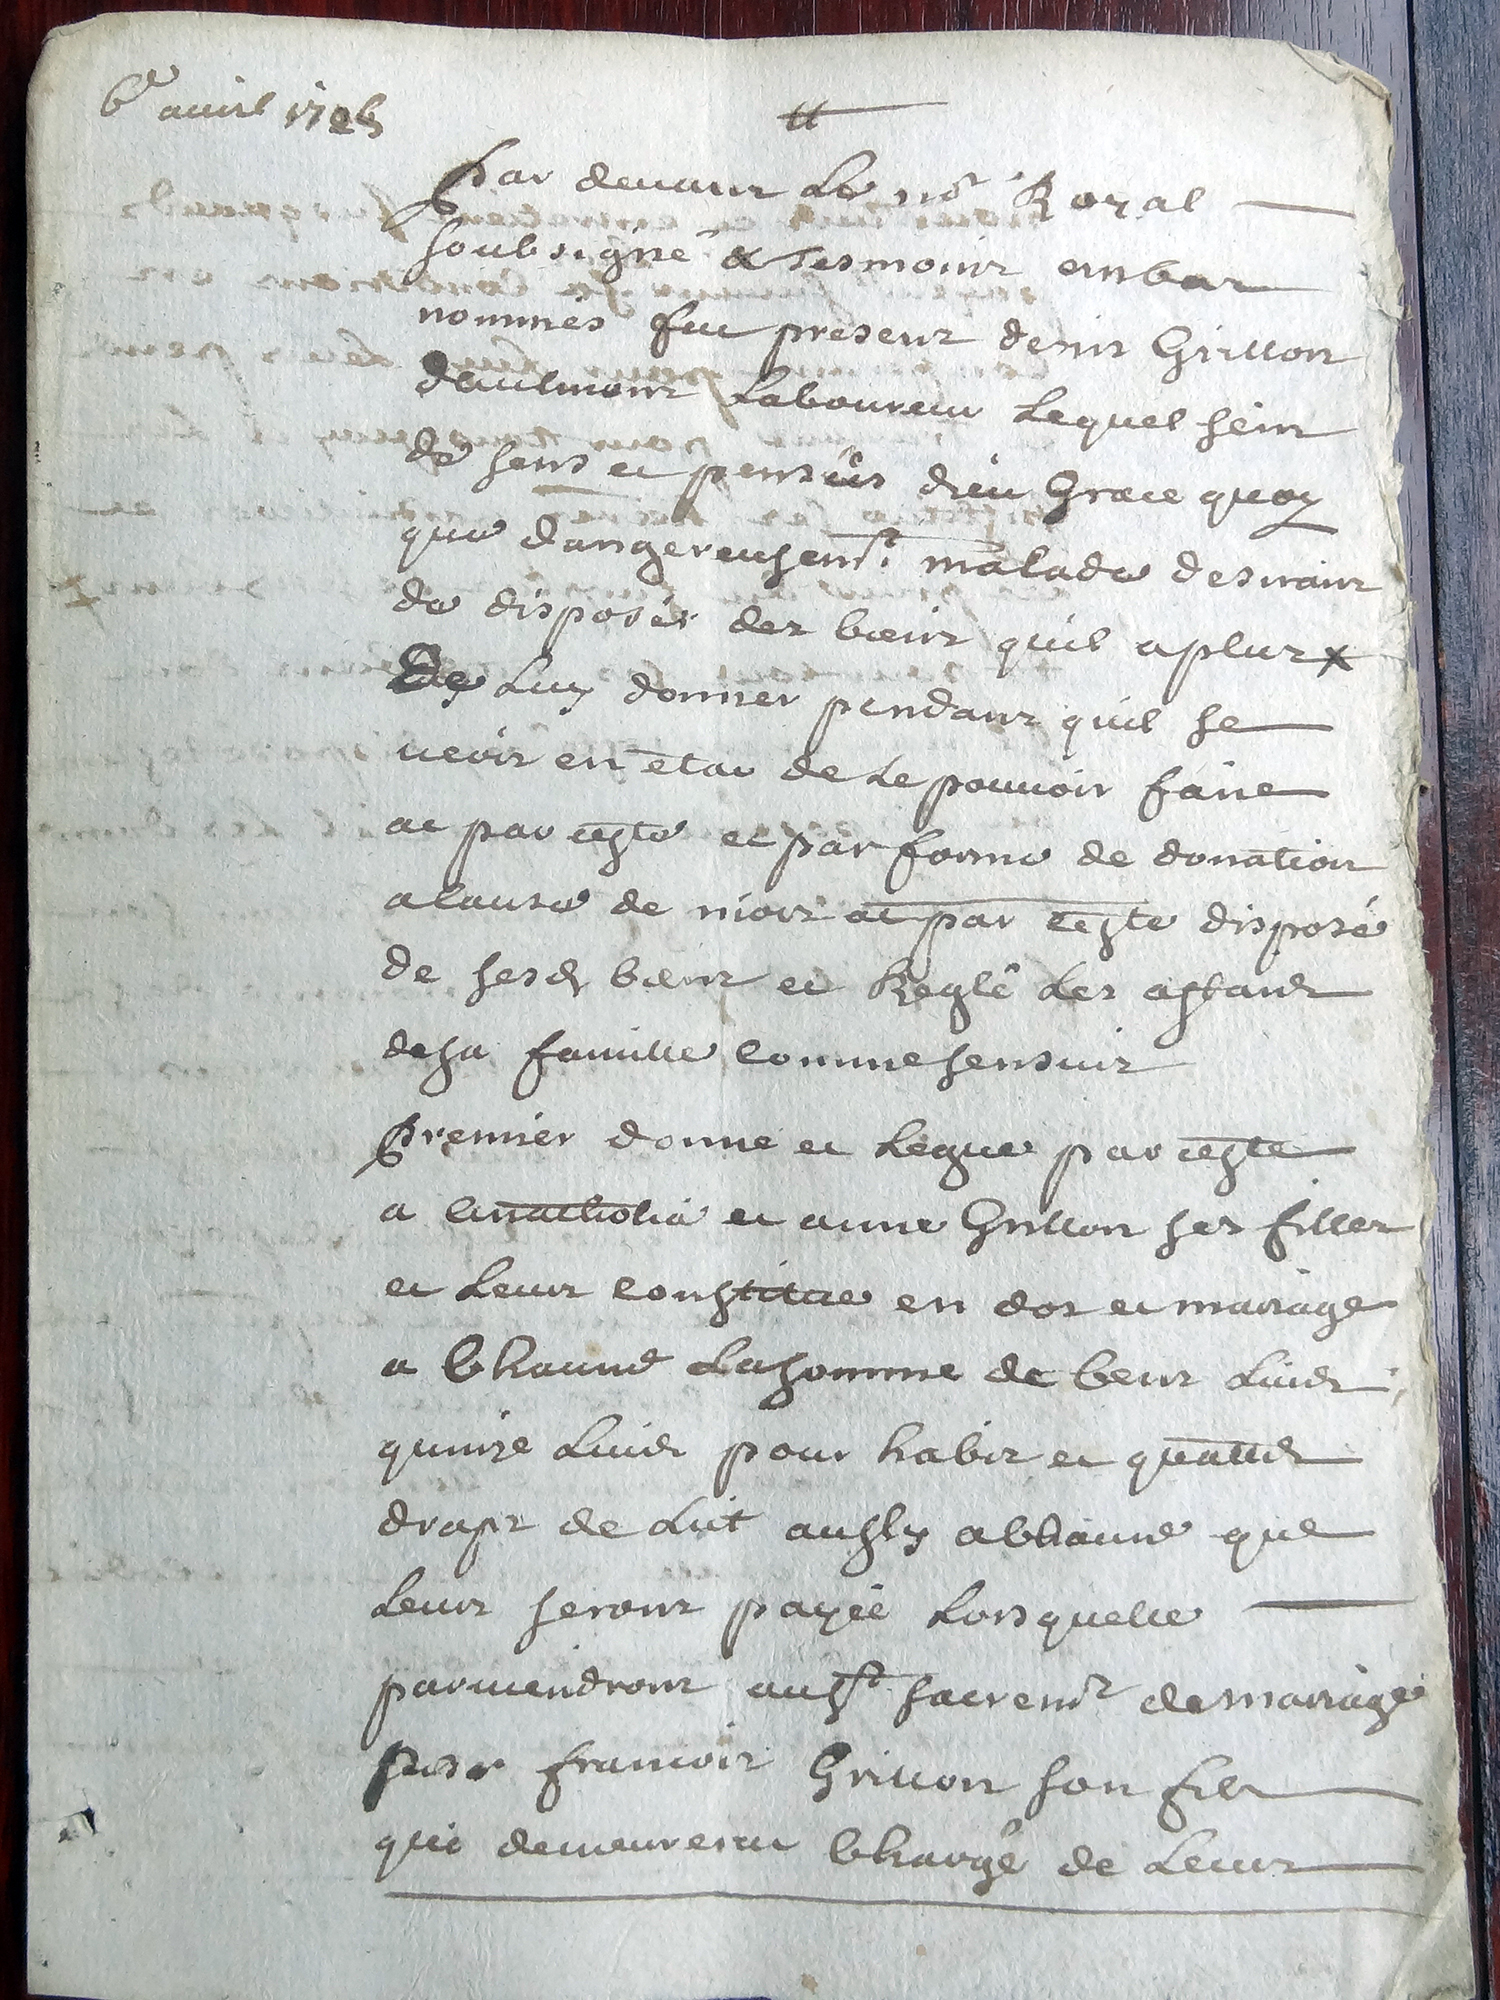 6e avril 1726
Par devant Le no.re Royal
soubsigné & tesmoins enbas
nommés fut present denis Gritton
d'aulmont Laboureur Lequel sein
de sens et pensées dieu Grace quoy
que dangereusem.t malade desirant
de disposer des biens quil a plus
De Luy donner pendant quil se
voir en état de Le pouvoir faire
at par ceste et par forme de donation
a cause de mort at par ceste disposé
de sesd biens et Reglé Les affaires
desa famille comme sensuit
Premier donne et Legue par ceste
a et anne Gritton ses filles
et Leur constitue en dot et mariage
a Chacune Lasomme de Cent Livres
quinze Livres pour habis et quattre
draps de Lict aussy a Chacune que
Leur seront payée Lorsquelle
parviendront aus.t sacrem.t de mariage
par francois Gritton son fils
qui demeurera Chargé de Leurs